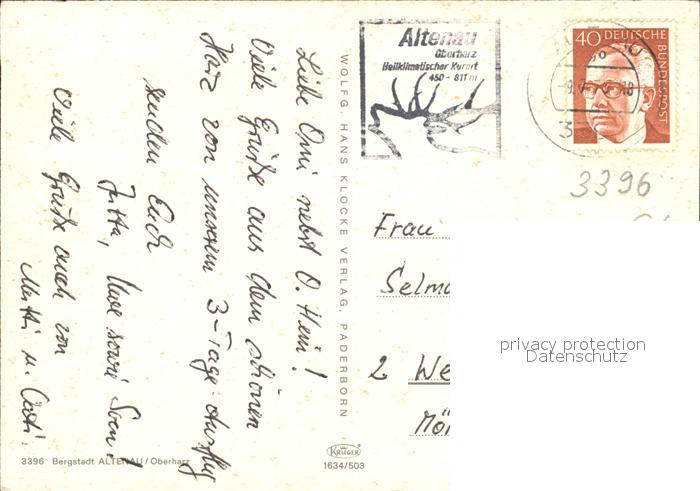 Liebe Omi nebst O. Heini!
Viele Grüße aus dem schönen
Harz von unserem 3-Tage-Ausflug
senden Euch
Jutta, Uwe sowie Sven!
Viele Grüße auch von
u.
WOLFG. HANS KLOCKE VERLAG, PADERBORN
3396 Bergstadt ALTENAU/Oberharz
KRÜGER
1634/503
Altenau
Oberharz
Heilklimatischer Kurort
450 - 811 m
40 DEUTSCHE
BUNDESPOST
3396
Frau
Selma
2 We
Mö
privacy protection
Datenschutz